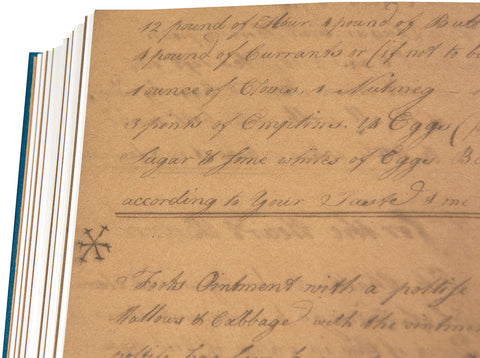 12 pound of flour. 4 pound of But
4 pound of Currants or (if not to b
1 ounce of Cloves. 1 Nutmeg -
3 pints of Emptins. 14 Eggs (
Sugar & some whites of Eggs. B
according to Your Taste
Ointment with a poltise
Mallows & Cabbage with the ointm